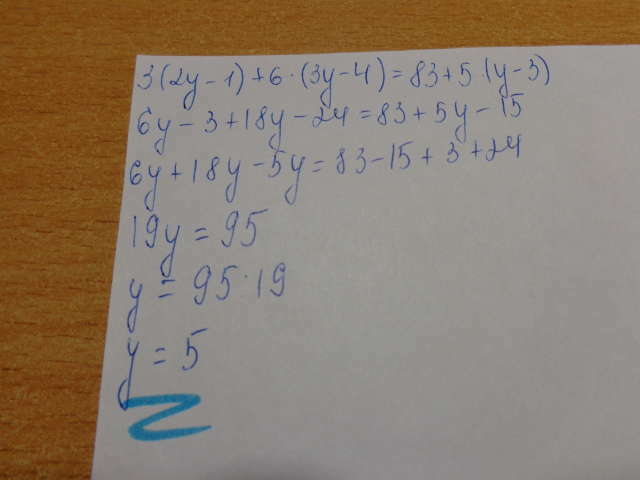 3(2y-1)+6·(3y-4)=83+5·(y-3)
6y-3+18y-24=83+5y-15
6y+18y-5y=83-15+3+24
19y=95
y=95·19
y=5